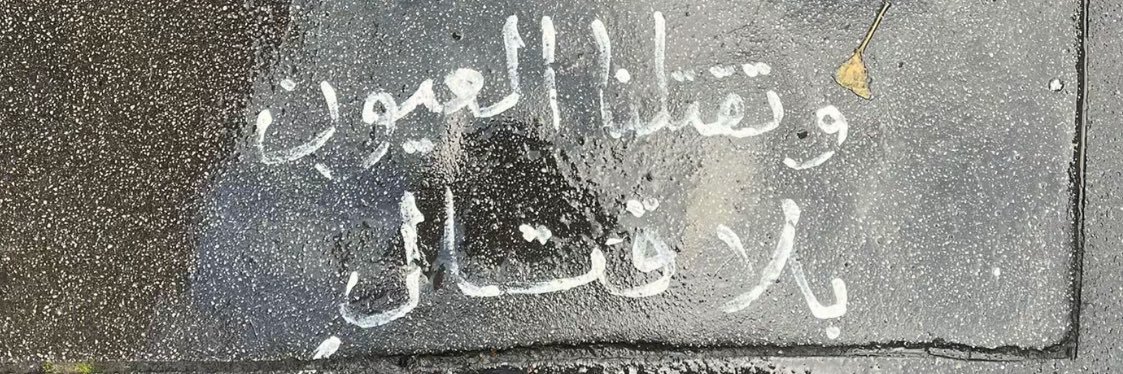 وتقتلنا العيونِ
بلا قتالِ